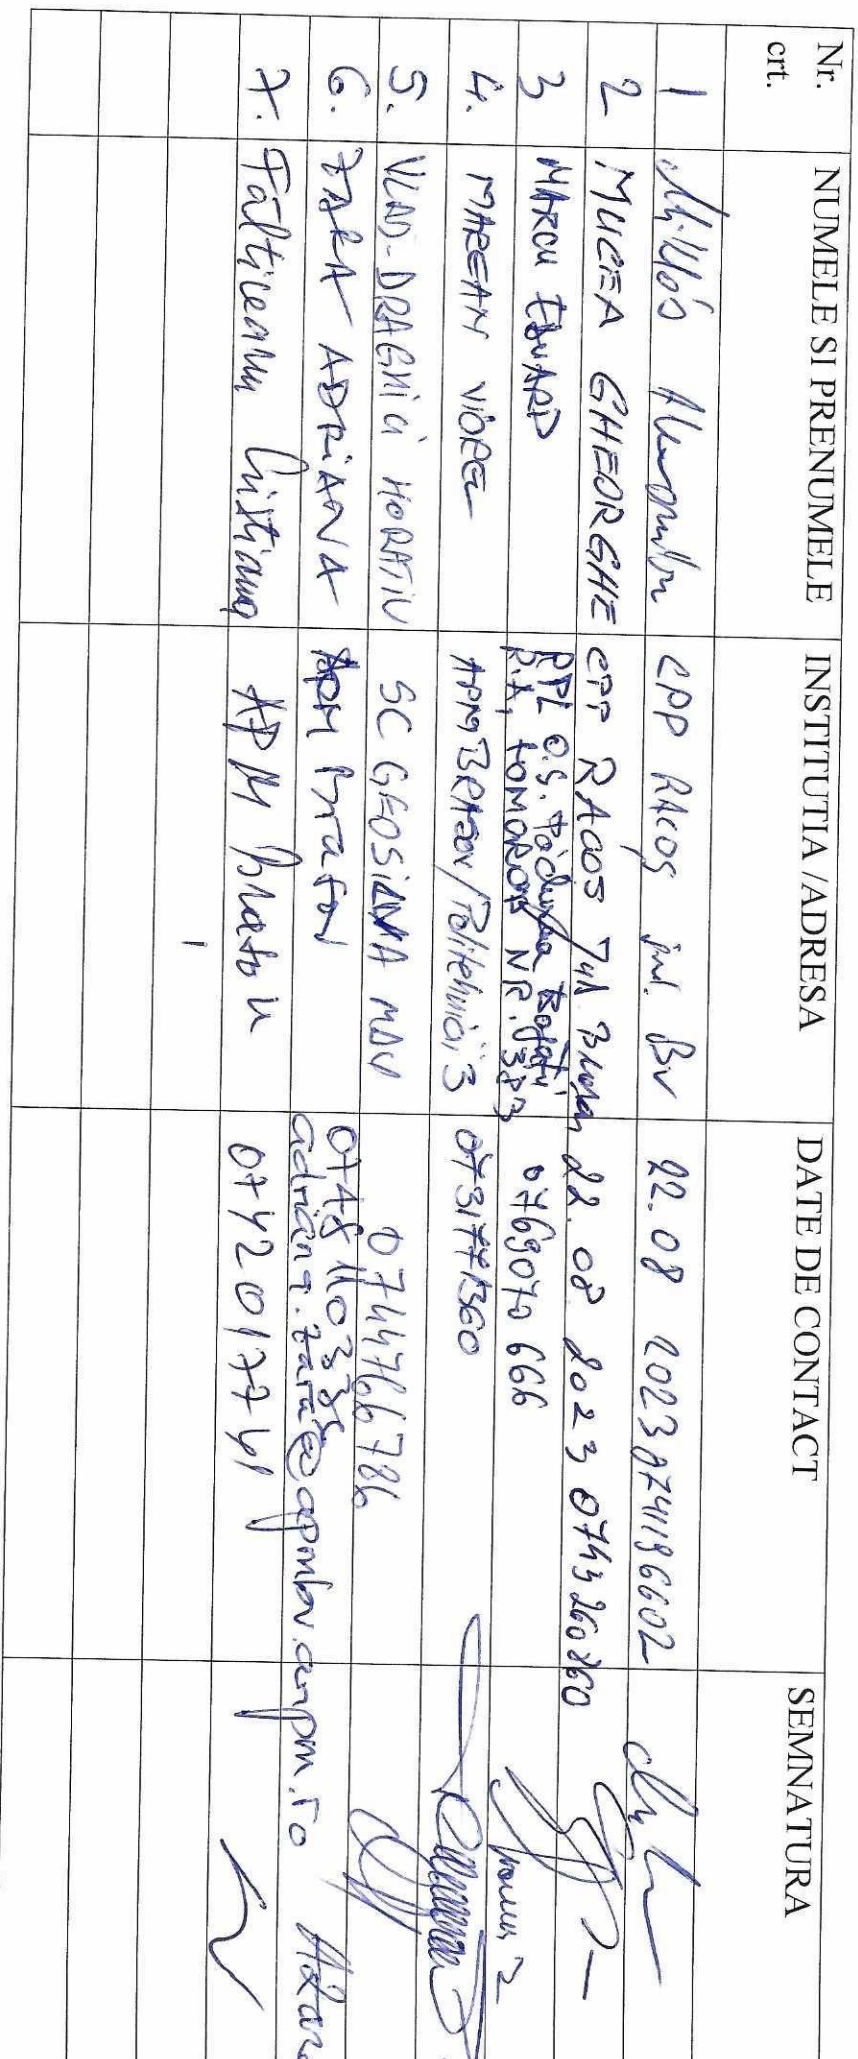 Nr. crt. NUMELE SI PRENUMELE INSTITUTIA /ADRESA DATE DE CONTACT SEMNATURA
1 Miklós CPP RACOȘ jud. BV 22.08 2023 0741196602
2 MUCEA GHEORGHE CPP RACOS Jud Brașov 22.08 2023 0743260260
3 MARCU EDUARD RPL O.S. Pădurea Bogății
R.A, NR. 0769070666
4. MAREAN VIOREL APM BRAȘOV/Politehnicii, 3 0731771360
5. VLAD-DRAGHICI HORATIU SC GEOSILVA 0744766786
6. ZARA ADRIANA APM Brașov
adriana.zara@apmbv.anpm.ro AZara
7. Fălticeanu Cristiana APM Brașov 0742017741